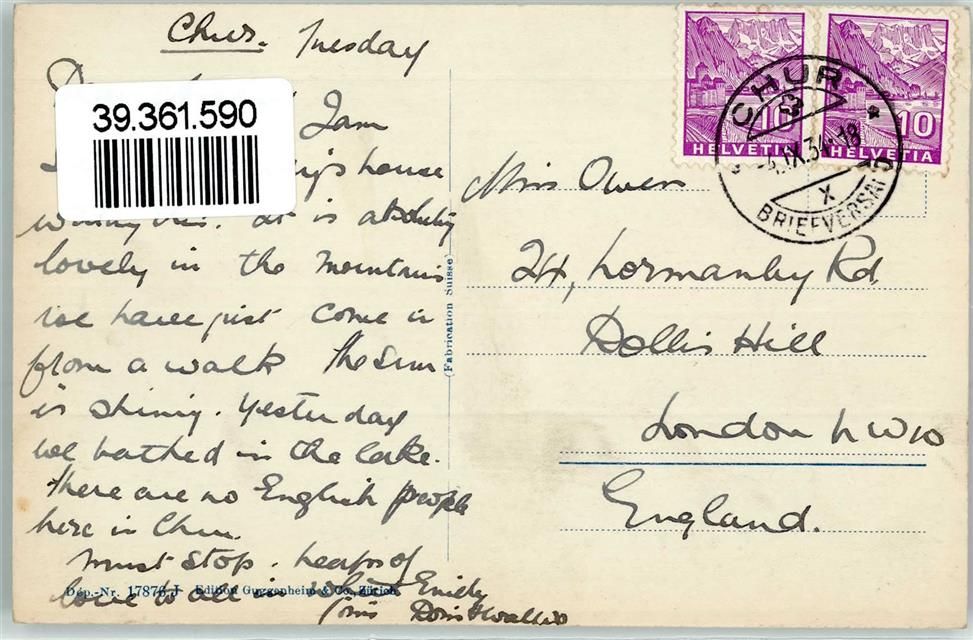 Chur. Tuesday
39.361.590
I am
house
it is absolutely
lovely in the mountains
we have just come in
from a walk the sun
is shining. Yesterday
we bathed in the lake.
There are no English people
here in Chur.
must stop. heaps of
love to all in
Doris
Dép.-Nr. 17876 J Edition Guggenheim & Co., Zürich
(Fabrication Suisse)
HELVETIA 10
HELVETIA 10
CHUR
IX.34
X
BRIEFVERSAND
Miss Owen
24, Normanby Rd.
Dollis Hill
London NW10
England.